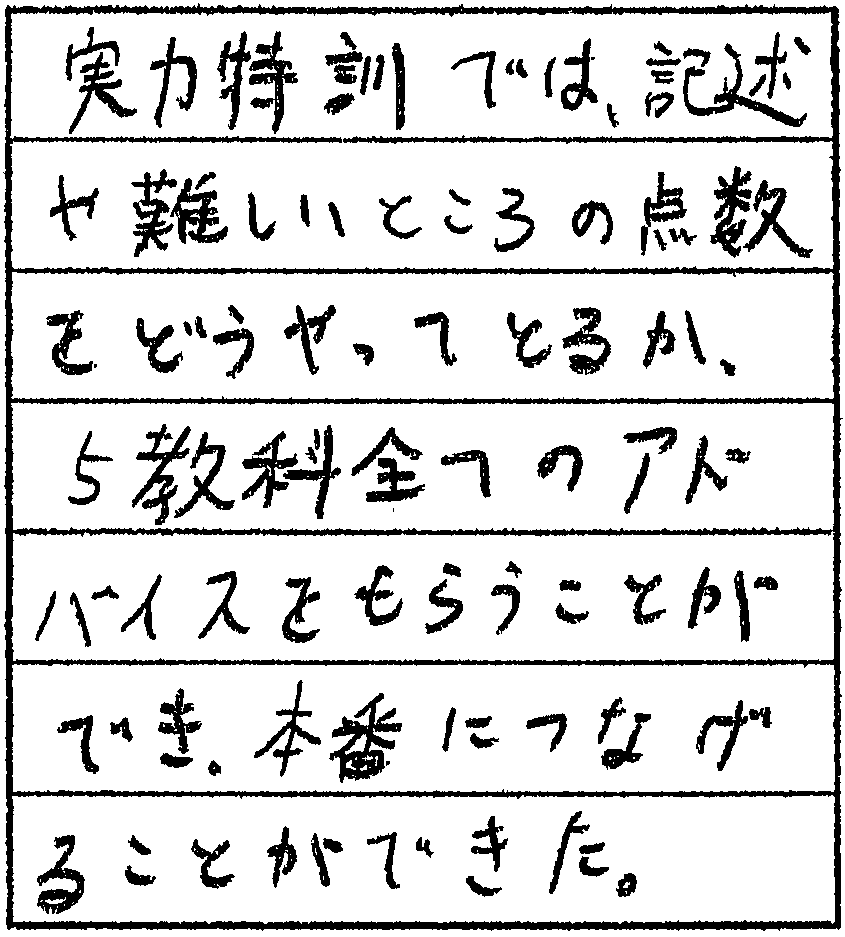 実力特訓では、記述
や難しいところの点数
をどうやってとるか、
5教科全てのアド
バイスをもらうことが
でき、本番につなげ
ることができた。